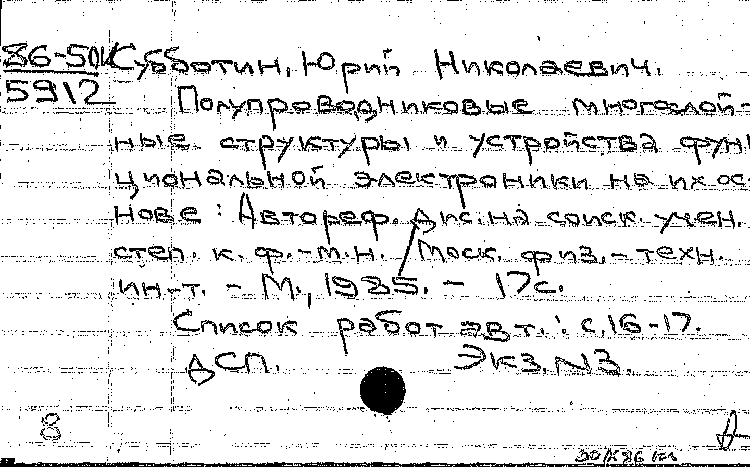 86-50к Субботин, Юрий Николаевич.
5912
Полупроводниковые многослой-
ные структуры и устройства функ
циональной электроники на их ос
нове : Автореф. дис. на соиск. учен.
степ. к. ф.-м.н. / Моск. физ.-техн.
ин-т. - М., 1985. - 17с.
Список работ авт.: с.16-17.
ДСП. Экз. N3.
8